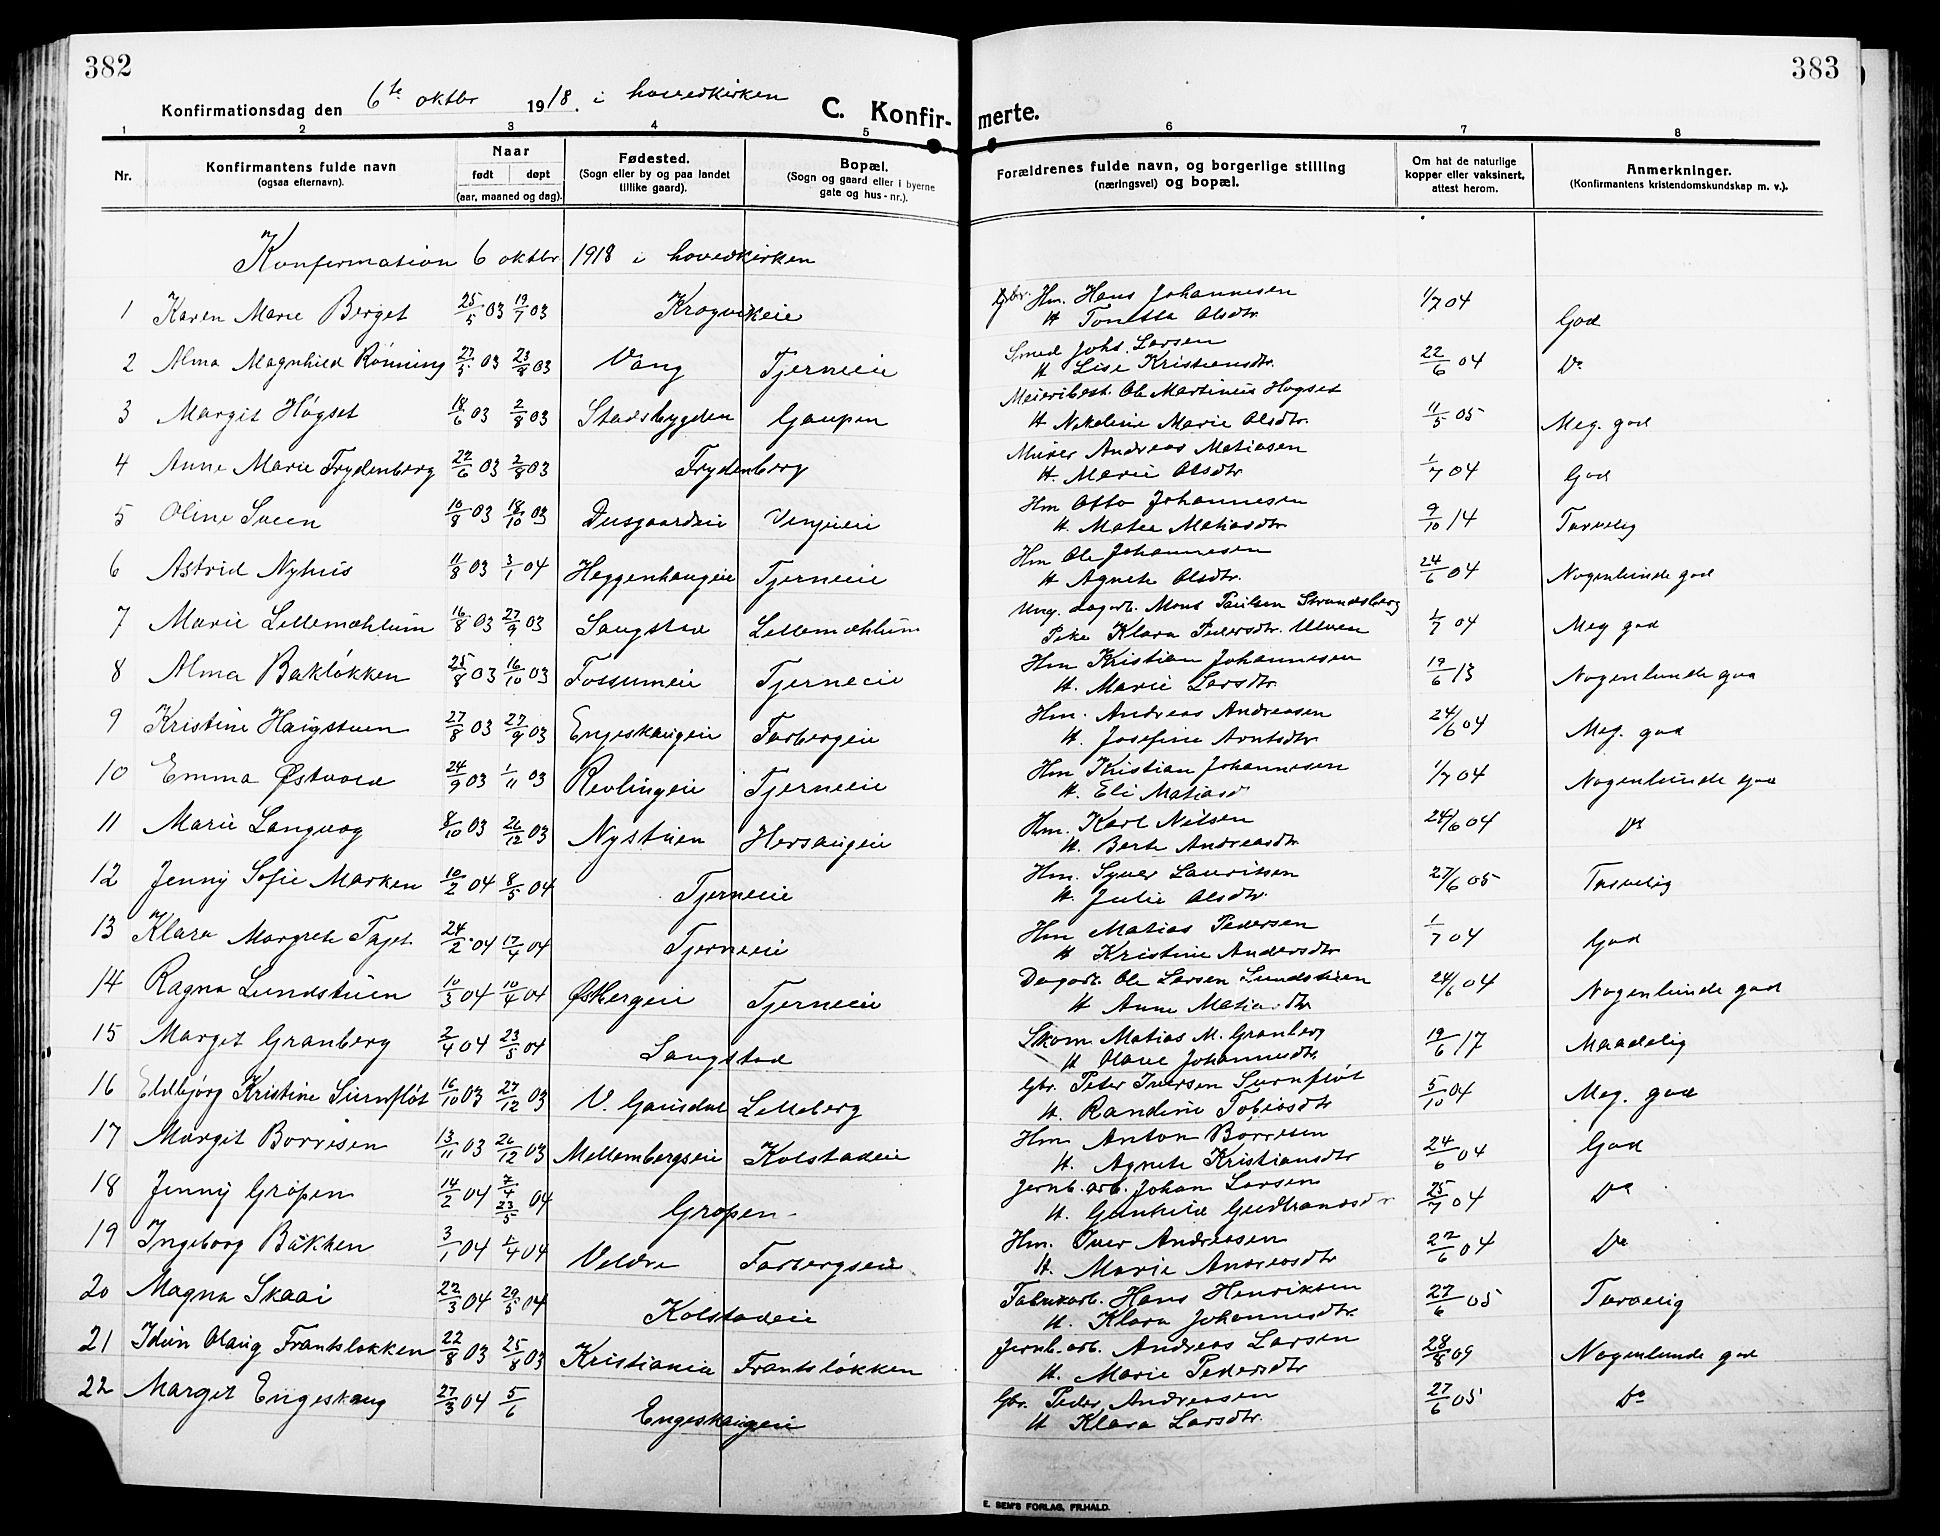 382
383
Konfirmationsdag den 6te oktbr 1918. i hovedkirken
C. Konfir-
merte.
1 2 3 4 5 6 7 8
Nr.
Konfirmantens fulde navn
(ogsaa efternavn).
Naar
født døpt
(aar, maaned og dag).
Fødested.
(Sogn eller by og paa landet
tillike gaard).
Bopæl.
(Sogn og gaard eller i byerne
gate og hus-nr.).
Forældrenes fulde navn, og borgerlige stilling
(næringsvei) og bopæl.
Om hat de naturlige
kopper eller vaksinert,
attest herom.
Anmerkninger.
(Konfirmantens kristendomskundskap m. v.).
Konfirmation 6 oktbr 1918 i hovedkirken
1 Karen Marie Berget 25/5 03 19/7 03 Kragvikeie Gbr. Hm. Hans Johannesen 1/7 04 God
H Tonetta Olsdtr.
2 Alma Magnhild Rönning 27/5 03 23/8 03 Vang Tjerneeie Smed Johs. Larsen 22/6 04 Do
H Lise Kristiansdtr.
3 Margit Högset 18/6 03 2/8 03 Stadsbygden Gaupen Meieribest. Ole Martinus Hogset 11/5 05 Meg. god
H Nikoline Marie Olsdtr.
4 Anne Marie Frydenberg 22/6 03 2/8 03 Frydenberg Murer Andreas Matiasen 1/7 04 God
H. Marie Olsdtr.
5 Oline Sveen 10/8 03 18/10 03 Deisgaardeie Venjeeie Hm Otto Johannesen 9/10 14 Tarvelig
H. Matea Matiasdtr.
6 Astrid Nyhus 11/8 03 3/1 04 Heggenhaugeie Tjerneeie Hm Ole Johannesen 24/6 04 Nogenlunde god
H Agnete Olsdtr.
7 Marie Lillemæhlum 16/8 03 27/9 03 Saugstad Lillemæhlum Ung. dagarb. Mons Paulsen Strandsberg 1/7 04 Meg god
Pike Klara Pedersdtr. Ulven
8 Alma Bakløkken 25/8 03 16/10 03 Fossumeie Tjerneeie Hm Kristian Johannesen 19/6 13 Nogenlunde god
H. Marie Larsdtr.
9 Kristine Haugstuen 27/8 03 27/9 03 Engeshaugeie Farbergeie Hm. Andreas Andreasen 24/6 04 Meg. god
H. Josefine Arntsdtr
10 Emma Østvold 24/9 03 1/11 03 Revlingeie Tjerneeie Hm Kristian Johannesen 1/7 04 Nogenlunde god
H. Eli Matiasd
11 Marie Langvag 8/10 03 26/12 03 Nystuen Hersaugeie Hm. Karl Nilsen 24/6 04 Do
H. Berte Andreasdtr
12 Jenny Sofie Marken 10/2 04 8/5 04 Tjerneeie Hm. Syver Lauritsen 27/6 05 Tarvelig
H. Julie Olsdtr.
13 Klara Margrete Taje 24/2 04 17/4 04 Tjerneeie Hm Matias Pedersen 1/7 04 God
H Kristine Andersdtr
14 Ragna Lundstuen 10/3 04 10/4 04 Østbergeie Tjerneeie Dagarb. Ole Larsen Lundstuen 24/6 04 Nogenlunde god
H Anne Matiasdtr
15 Marget Granberg 2/4 04 23/5 04 Saugstad Skom. Matias M. Granberg 19/6 17 Maadelig
H Olave Johannesdtr.
16 Eldbjörg Kristine Surnflöt 16/10 03 27/12 03 V. Gausdal Lilleberg Gbr. Peter Iversen Surnflöt 5/10 04 Meg. god
H. Randine Tobiasdtr
17 Margit Borresen 13/11 03 26/12 03 Mellembergseie Kolstadeie Hm Anton Borresen 24/6 04 God
H. Agnete Kristiansdtr
18 Jenny Gropen 14/2 04 7/4 23/5 04 Gropen Jernb. arb. Johan Larsen 25/7 04 Do
H. Gunhild Gudbrandsdr
19 Ingeborg Bakken 3/1 04 1/4 04 Veldre Farbergseie Hm. Iver Andreasen 22/6 04 Do
H. Marie Andreasdtr
20 Magna Skaai 22/3 04 29/5 04 Kolstadeie Fabrikarb. Hans Henriksen 27/6 05 Tarvelig
H. Klara Johannesdtr.
21 Idun Olaug Frantsløkken 22/8 03 25/8 03 Kristiania Frantsløkken Jernb. arb. Andreas Larsen 28/8 09 Nogenlunde god
H. Marie Pedersdtr
22 Marget Engeshaug 27/3 04 5/6 Engeshaugeie Gbr. Peder Andreasen 27/6 05 Do
H Klara Larsdtr.
E. SEM'S FORLAG, FR.HALD.